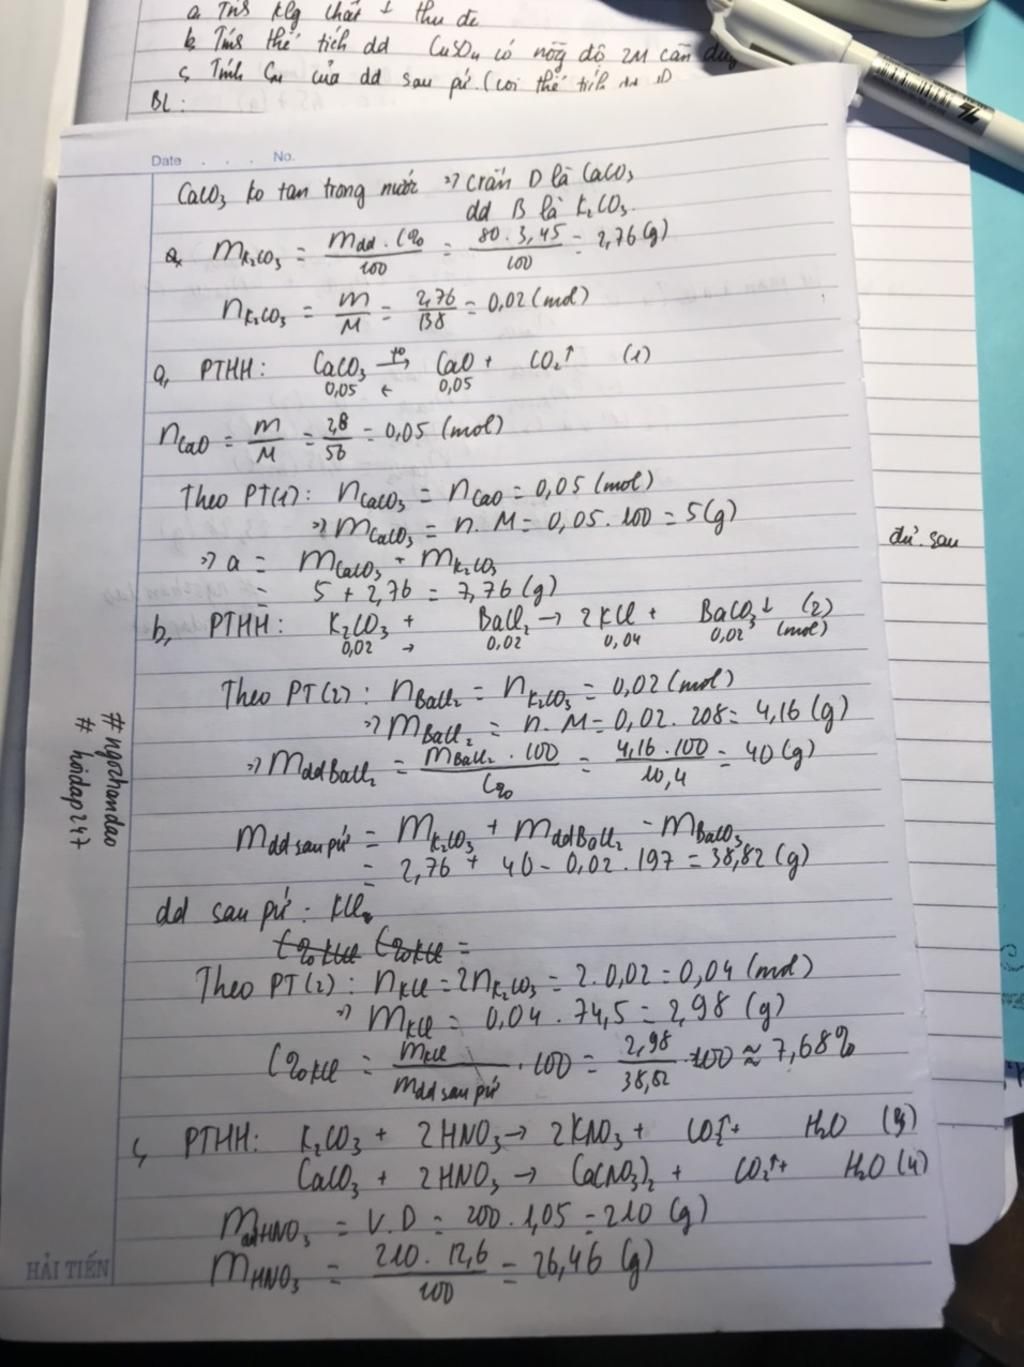 a. Tính klg chất ↓ thu đc
b. Tính thể tích dd CuSO4 có nồng độ 2M cần dùng
c, Tính CM của dd sau pứ. (coi thể tích dd
BL:
Date . . . No.
CaCO3 ko tan trong nước => crắn D là CaCO3
dd B là K2CO3.
a, mK2CO3 = mdd . C% / 100 = 80 . 3,45 / 100 = 2,76 (g)
nK2CO3 = m / M = 2,76 / 138 = 0,02 (mol)
a, PTHH: CaCO3 –t°→ CaO + CO2↑ (1)
0,05 ← 0,05
nCaO = m / M = 2,8 / 56 = 0,05 (mol)
Theo PT(1): nCaCO3 = nCaO = 0,05 (mol)
=> mCaCO3 = n. M = 0,05. 100 = 5(g)
=> a = mCaCO3 + mK2CO3
= 5 + 2,76 = 7,76 (g)
đ/. sau
b, PTHH: K2CO3 + BaCl2 → 2KCl + BaCO3↓ (2)
0,02 → 0,02 0,04 0,02 (mol)
Theo PT(2): nBaCl2 = nK2CO3 = 0,02 (mol)
=> mBaCl2 = n. M = 0,02. 208 = 4,16 (g)
=> mddBaCl2 = mBaCl2 . 100 / C% = 4,16 . 100 / 10,4 = 40 (g)
mdd sau pứ = mK2CO3 + mddBaCl2 - mBaCO3
= 2,76 + 40 - 0,02 . 197 = 38,82 (g)
dd sau pứ: KCl
C%KCl C%KCl =
Theo PT(2): nKCl = 2nK2CO3 = 2. 0,02 = 0,04 (mol)
=> mKCl = 0,04 . 74,5 = 2,98 (g)
C%KCl = mKCl / mdd sau pứ . 100 = 2,98 / 38,82 . 100 ≈ 7,68%
c, PTHH: K2CO3 + 2HNO3 → 2KNO3 + CO2↑ + H2O (3)
CaCO3 + 2HNO3 → Ca(NO3)2 + CO2↑ + H2O (4)
mddHNO3 = V. D = 200 . 1,05 = 210 (g)
mHNO3 = 210 . 12,6 / 100 = 26,46 (g)
#ngochandao
# hoidap247
HẢI TIẾN